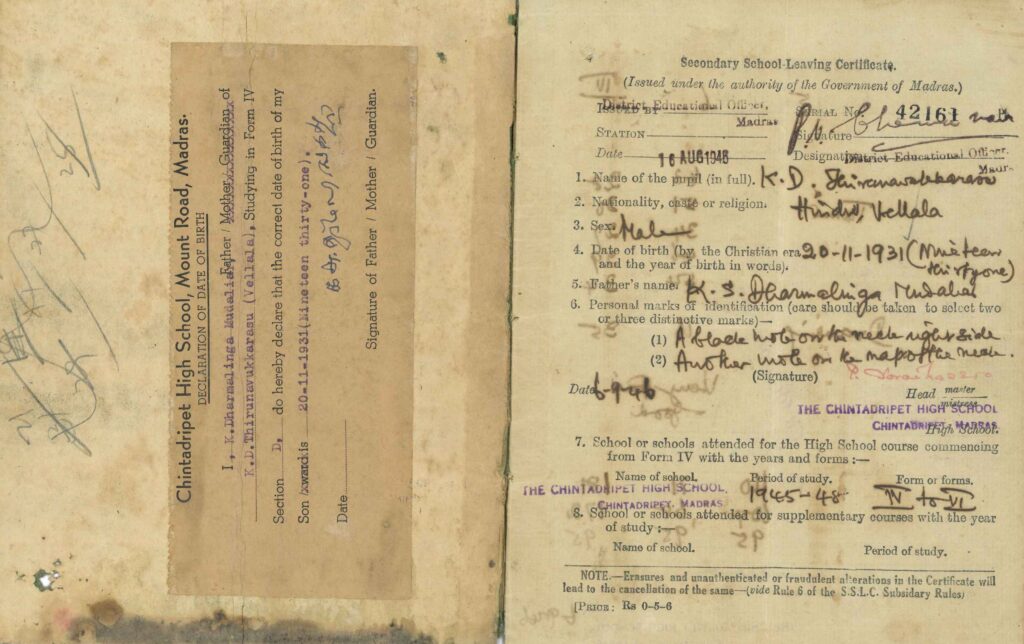 Chintadripet High School, Mount Road, Madras.
DECLARATION OF DATE OF BIRTH
I, K.Dharmalinga Mudaliar, Father / Mother / Guardian of
K.D.Thirunavukkarasu (Vellala), Studying in Form IV
Section D, do hereby declare that the correct date of birth of my
Son /xward is 20-11-1931(Nineteen thirty-one).
Date
Signature of Father / Mother / Guardian.
Secondary School-Leaving Certificate.
(Issued under the authority of the Government of Madras.)
ISSUED BY District Educational Officer, Madras
SERIAL No. 42161
STATION
Signature
Date 16 AUG 1946
Designation District Educational Officer, Madras
1. Name of the pupil (in full). K.D. Thirunavukkarasu
2. Nationality, caste or religion. Hindu, Vellala
3. Sex. Male
4. Date of birth (by the Christian era 20-11-1931 (Nineteen
and the year of birth in words). thirtyone)
5. Father's name. K. S. Dharmalinga Mudaliar
6. Personal marks of identification (care should be taken to select two
or three distinctive marks)—
(1) A black mole on the neck right side
(2) Another mole on the nape of the neck.
(Signature)
Date 6-9-46
Head master
mistress
THE CHINTADRIPET HIGH SCHOOL
CHINTADRIPET, MADRAS.
High School.
7. School or schools attended for the High School course commencing
from Form IV with the years and forms :—
Name of school. Period of study. Form or forms.
THE CHINTADRIPET HIGH SCHOOL, 1945-48 IV to VI
CHINTADRIPET, MADRAS.
8. School or schools attended for supplementary courses with the year
of study :—
Name of school. Period of study.
NOTE.—Erasures and unauthenticated or fraudulent alterations in the Certificate will
lead to the cancellation of the same—(vide Rule 6 of the S.S.L.C. Subsidary Rules)
[PRICE: Rs 0-5-6